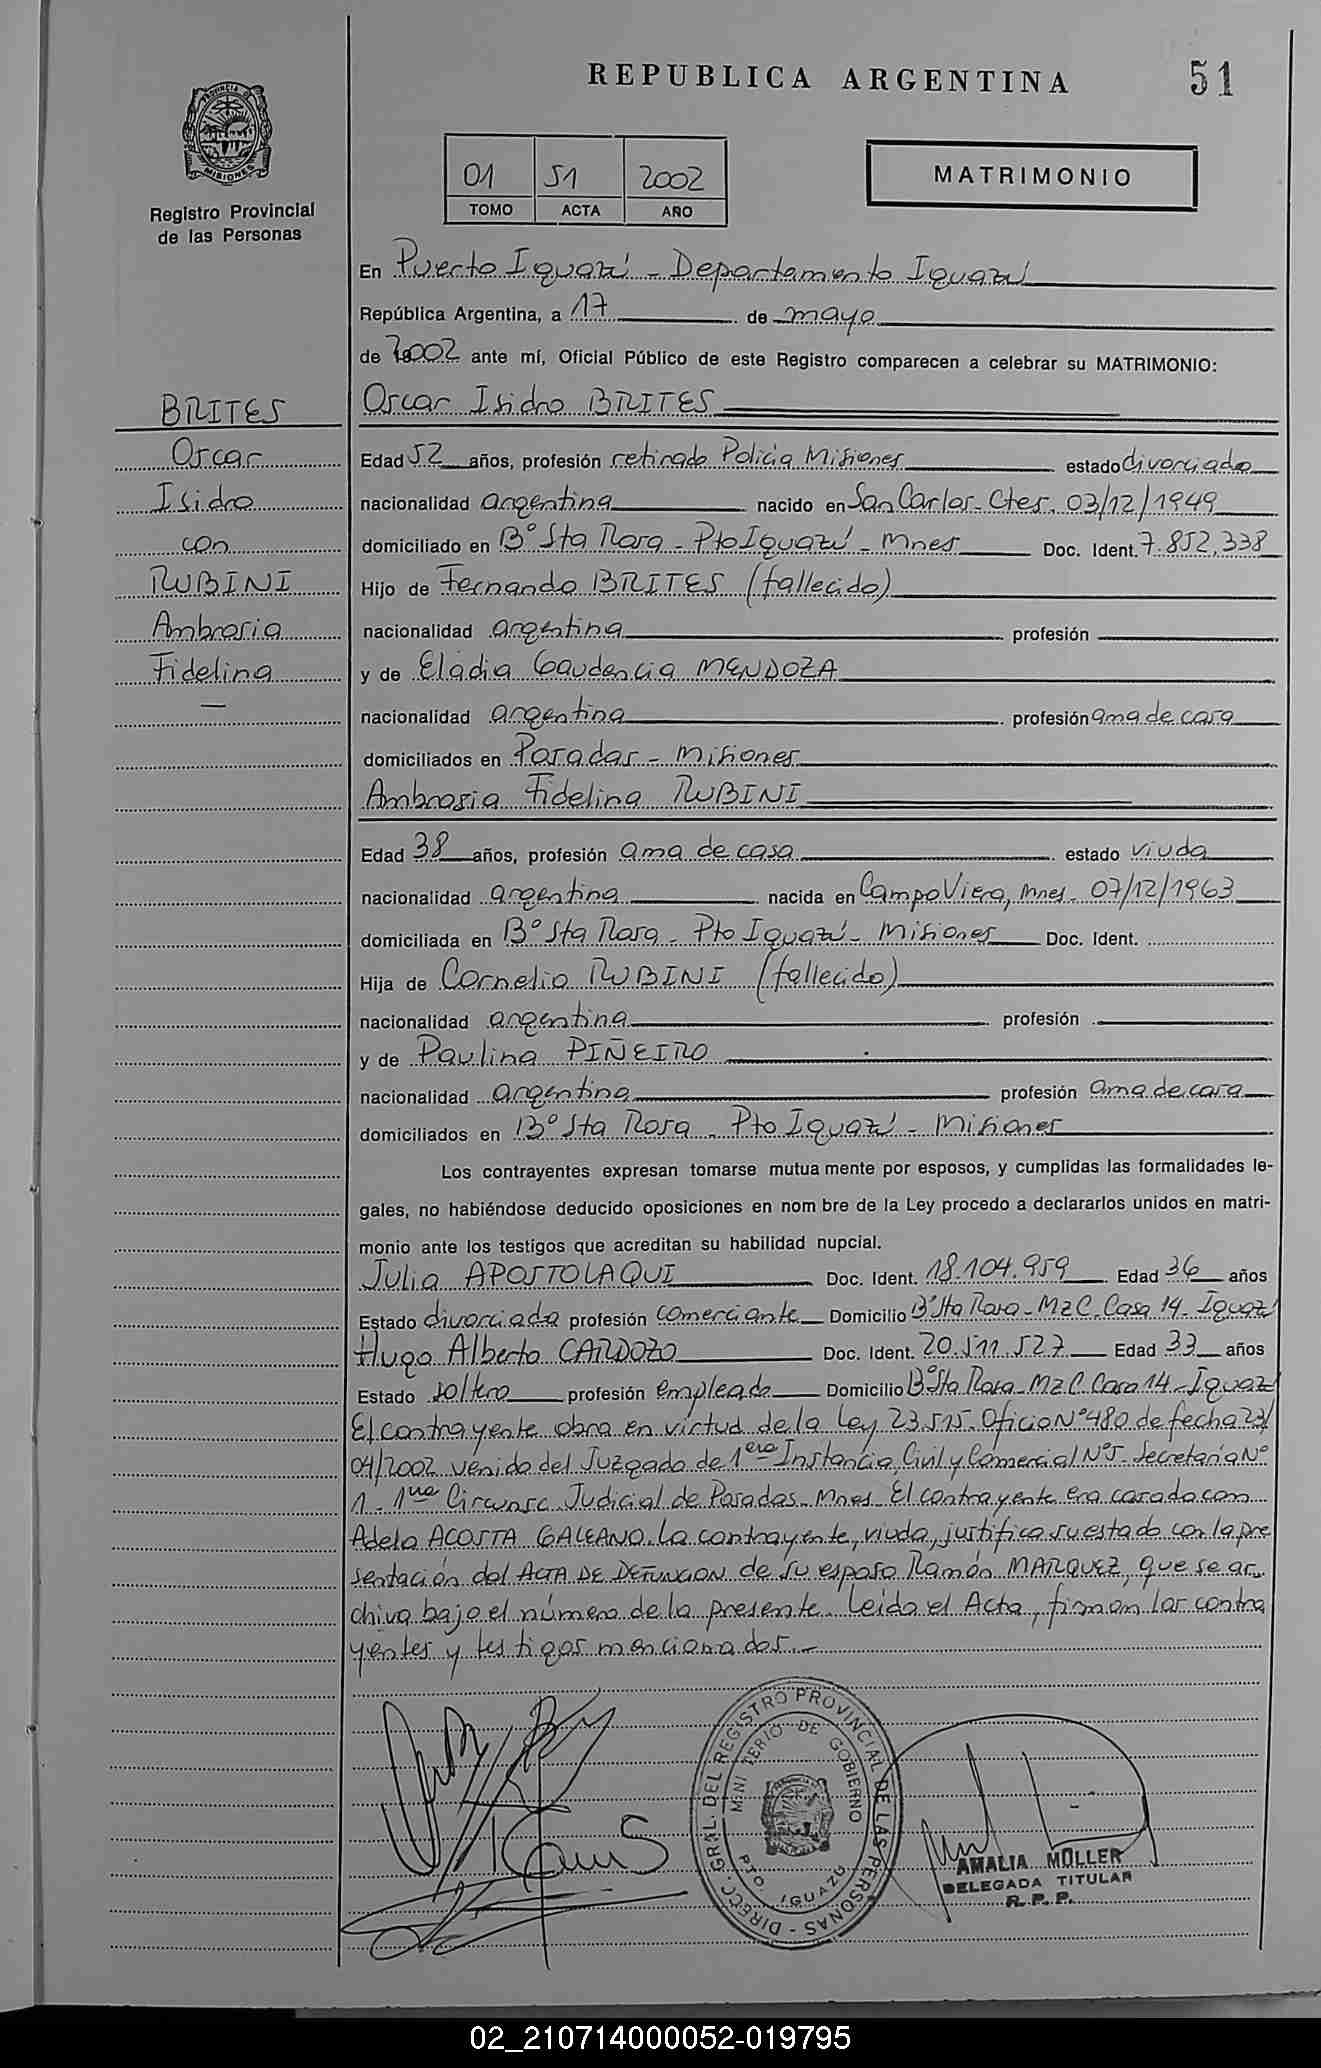 REPUBLICA ARGENTINA 51
PROVINCIA DE MISIONES
Registro Provincial
de las Personas
01 51 2002
TOMO ACTA AÑO
MATRIMONIO
En Puerto Iguazú - Departamento Iguazú
República Argentina, a 17 de mayo
de 2002 ante mí, Oficial Público de este Registro comparecen a celebrar su MATRIMONIO:
BRITES
Oscar
Isidro
con
RUBINI
Ambrosia
Fidelina
Oscar Isidro BRITES
Edad 52 años, profesión retirado Policia Misiones estado divorciado
nacionalidad argentina nacido en San Carlos. Ctes. 03/12/1949
domiciliado en B° Sta Rosa - Pto Iguazú - Mnes Doc. Ident. 7.852.338
Hijo de Fernando BRITES (fallecido)
nacionalidad argentina profesión
y de Eladia Gaudencia MENDOZA
nacionalidad argentina profesión ama de casa
domiciliados en Posadas - Misiones
Ambrosia Fidelina RUBINI
Edad 38 años, profesión ama de casa estado viuda
nacionalidad argentina nacida en Campo Viera, Mnes. 07/12/1963
domiciliada en B° Sta Rosa - Pto Iguazú - Misiones Doc. Ident.
Hija de Cornelio RUBINI (fallecido)
nacionalidad argentina profesión
y de Paulina PIÑEIRO
nacionalidad argentina profesión ama de casa
domiciliados en B° Sta Rosa - Pto Iguazú - Misiones
Los contrayentes expresan tomarse mutua mente por esposos, y cumplidas las formalidades le-
gales, no habiéndose deducido oposiciones en nom bre de la Ley procedo a declararlos unidos en matri-
monio ante los testigos que acreditan su habilidad nupcial.
Julia APOSTOLAQUI Doc. Ident. 18.104.959 Edad 36 años
Estado divorciada profesión comerciante Domicilio B° Sta Rosa - Mz C. Casa 14 - Iguazú
Hugo Alberto CARDOZO Doc. Ident. 20.511.527 Edad 33 años
Estado soltero profesión empleado Domicilio B° Sta Rosa - Mz C Casa 14 - Iguazú
El contrayente obra en virtud de la Ley 23.515. Oficio N° 480 de fecha 23/
04/2002 venido del Juzgado de 1era Instancia Civil y Comercial N° 5 - Secretaría N°
1 - 1ra Circunsc. Judicial de Posadas - Mnes. El contrayente era casado con
Adela ACOSTA GALEANO. La contrayente, viuda, justifica su estado con la pre
sentación del ACTA DE DEFUNCION de su esposo Ramón MARQUEZ, que se ar
chiva bajo el número de la presente. Leida el Acta, firman los contra
yentes y testigos mencionados.-
DIRECC. GRAL. DEL REGISTRO PROVINCIAL DE LAS PERSONAS
MINISTERIO DE GOBIERNO
PTO. IGUAZU
AMALIA MÜLLER
DELEGADA TITULAR
R. P. P.
02_210714000052-019795